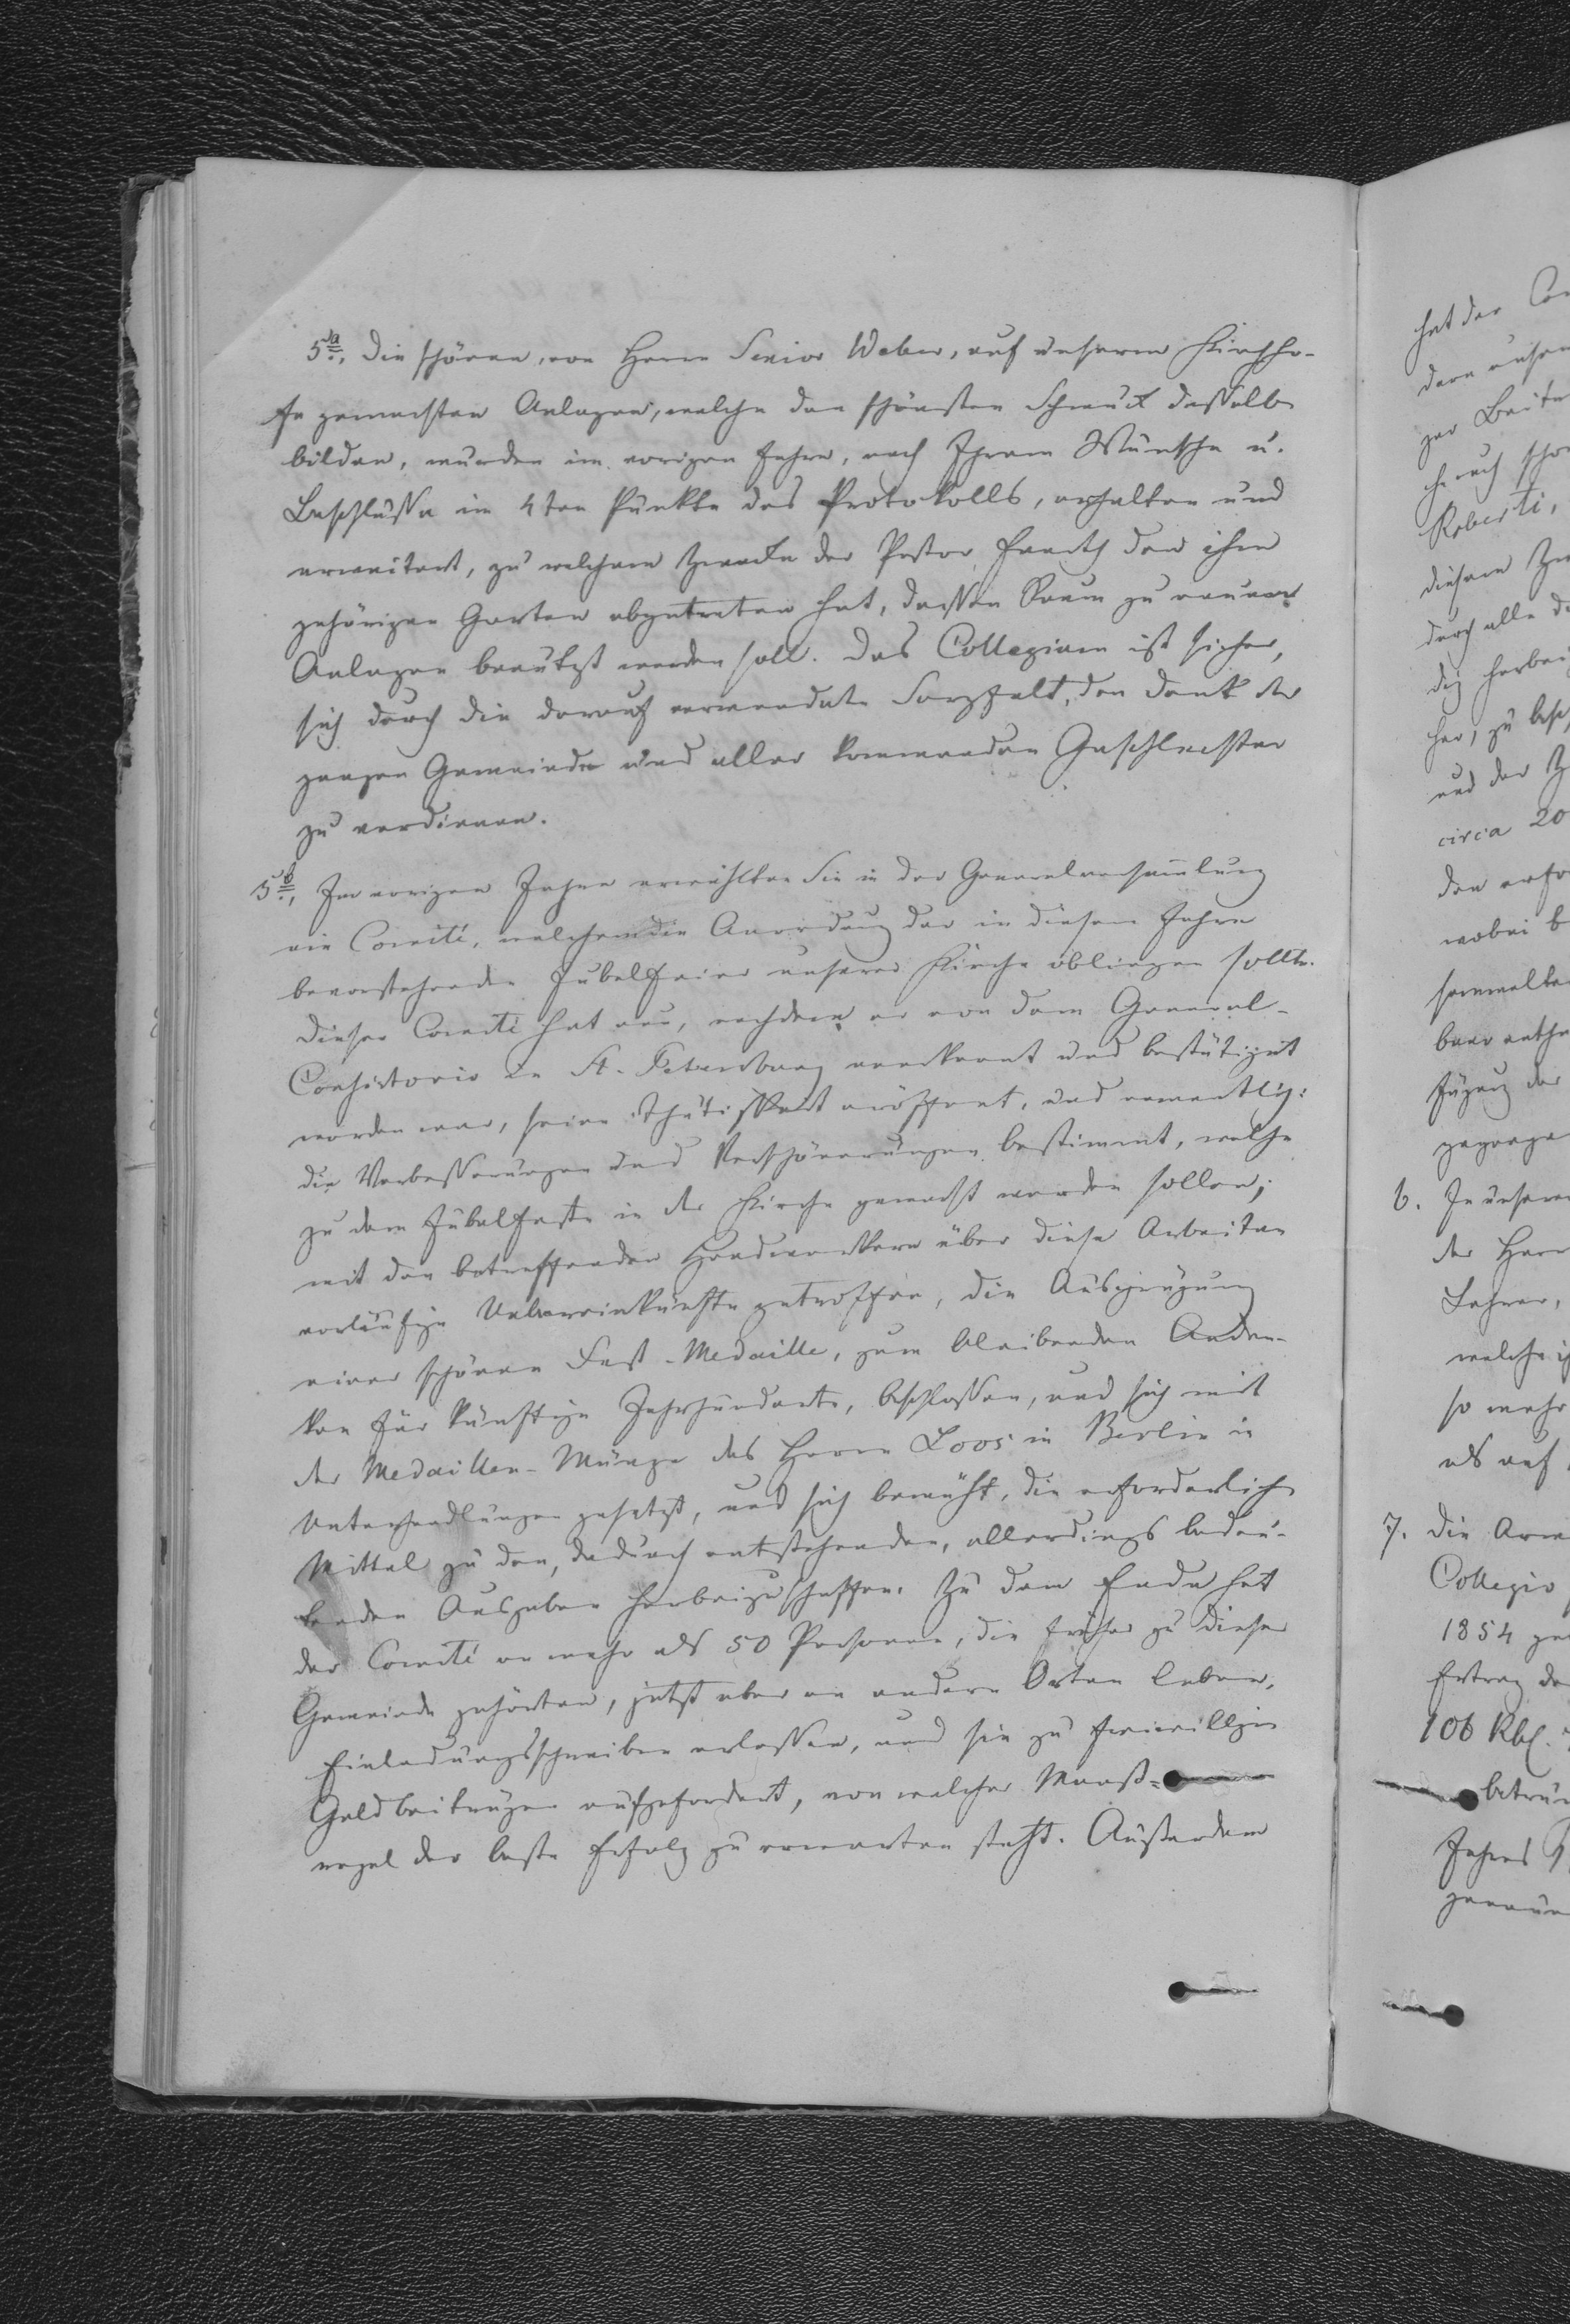 5a., Die schönen, von Herrn Senior Weber, auf unserem Kirchho-
fe gemachten Anlagen, welche den schönsten Schmuck desselben
bilden, wurden im vorigen Jahre, nach Ihrem Wunsche u.
Beschlusse im 4ten Punkte des Protokolls, erhalten und
erweitert, zu welchem Zwecke der Pastor den ihm
gehörigen Garten abgetreten hat, dessen Raum zu neuen
Anlagen benutzt werden soll. Das Collegium ist sicher,
sich durch die darauf verwendete Sorgfalt, den Dank der
ganzen Gemeinde und aller kommenden Geschlechter
zu verdienen.
5b., Im vorigen Jahre erwählten Sie in der Generalversam̄lung
ein Comité, welchem die Anordnung der in diesem Jahre
bevorstehenden Jubelfeier unserer Kirche obliegen sollte.
Dieser Comité hat nun, nachdem er von dem General-
Consistorio in St. Petersburg anerkannt und bestätigt
worden war, seine Thätigkeit eröffnet, und namentlich:
die Verbesserungen und Verschönerungen bestimmt, welche
zu dem Jubelfeste in der Kirche gemacht werden sollen;
mit den betreffenden Handwerkern über diese Arbeiten
vorläufige Uebereinkünfte getroffen, die Ausprägung
einer schönen Fest-Medaille, zum bleibenden Anden-
ken für künftige Jahrhunderte, beschlossen, und sich mit
der Medaillen-Münze des Herrn Loos in Berlin in
Unterhandlungen gesetzt, und sich bemüht, die erforderlichen
Mittel zu den, dadurch entstehenden, allerdings bedeu-
tenden Ausgaben herbeizuschaffen. Zu dem Ende hat
der Comité an mehr als 50 Personen, die früher zu dieser
Gemeinde gehörten, jetzt aber an andern Orten leben,
Einladungsschreiben erlassen, und sie zu freiwilligen
Geldbeiträgen aufgefordert, von welcher Maaß=
regel der beste Erfolg zu erwarten steht. Außerdem
hat der
Roberti,
durch alle
und der
circa 20
wobei
6. In unserer
der Herr
Lehrer,
welche
so mehr
als auf
7. Die
Collegio
1854
Ertrag
106 Rbl.
Jahres